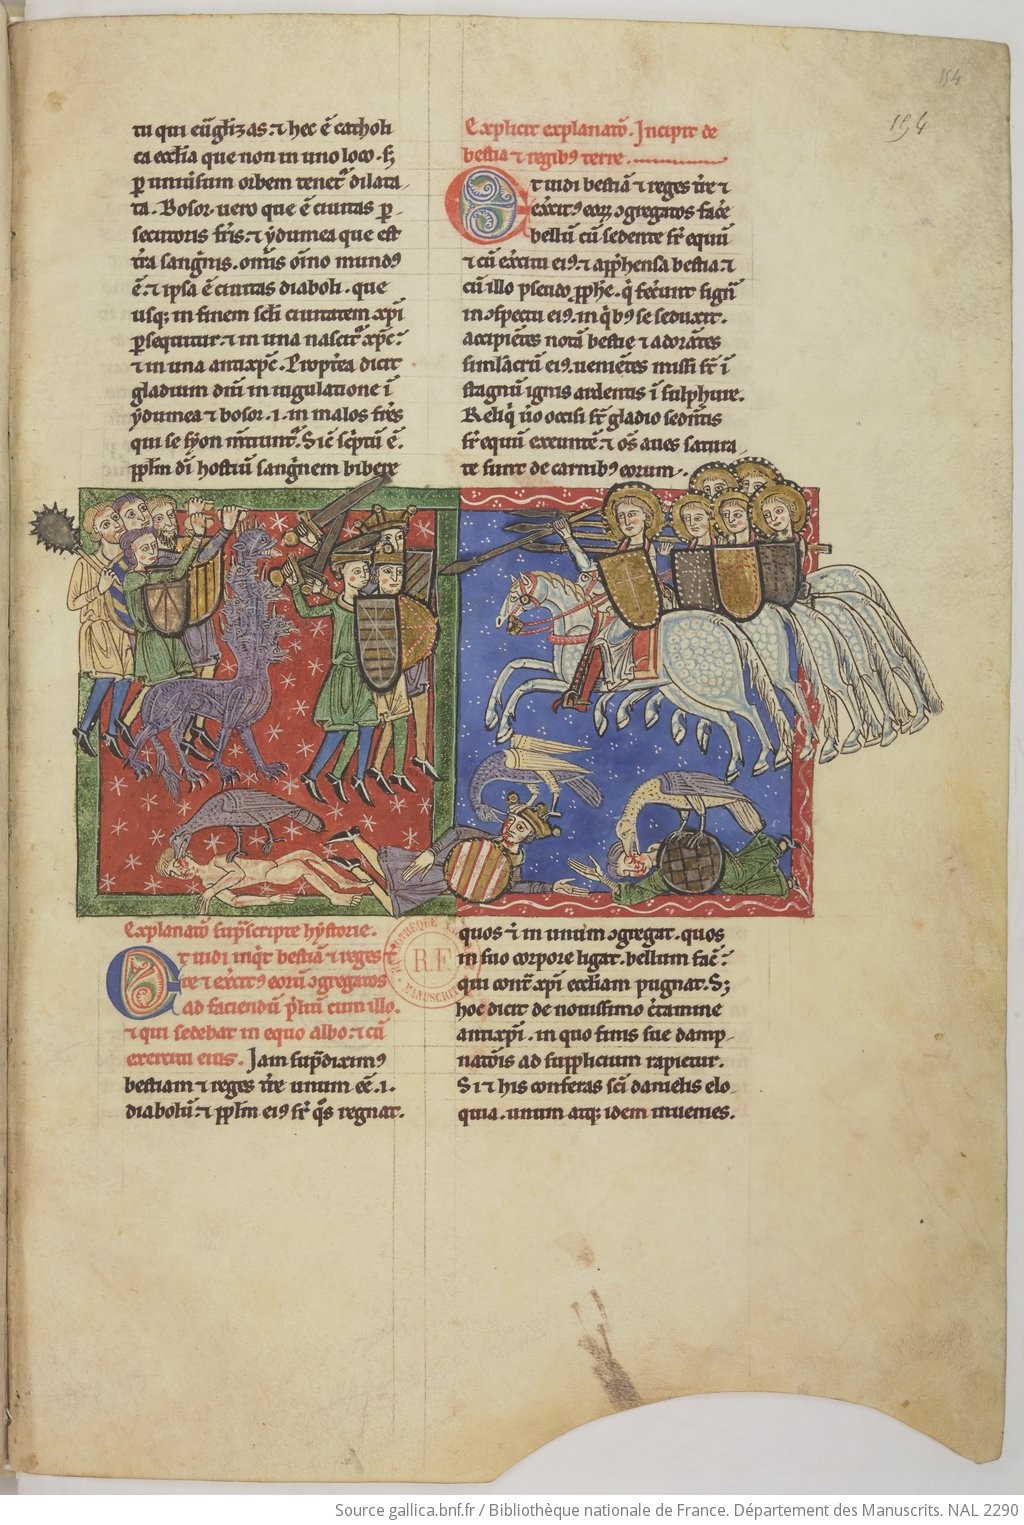 154
154
tu qui euġlizas · ⁊ hec ē catholi
ca eccl̄ia que non in uno loco · s;
ꝑ uniuīsum orbem teneť dilata
ta · Bosor uero que ē ciuitas ꝑ
secutoris fr̄is · ⁊ ydumea que est
t̄ra sangīnis · om̄is oīno mundꝰ
ē · ⁊ ipsa ē ciuitas diaboli · que
usq; in finem sc̄i ciuitatem xp̄i
ꝑsequitur · ⁊ in una nasciť xp̄c ·
⁊ in una antixp̄c · Propt̄ea dicit
gladium dn̄i in iugulatione ī
ydumea ⁊ bosor · i · in malos fr̄es
qui se syon m̄tiunť · Sic̄ sc̄ptū ē ·
pp̄lm dī hostiū sangīnem bibere
Explicit explanatō · Incipit de
bestia ⁊ regibꝰ terre ·
Et uidi bestiā ⁊ reges t̄re ⁊
exercitꝰ eoꝝ ↄgregatos fac̄e
bellū cū sedente sr̄ equū
⁊ cū exercitu eiꝰ · ⁊ app̄hensa bestia · ⁊
cū illo pseudo ꝓph̄e · q̇ fec̄unt signā
in ↄspectu eiꝰ · in q̇bꝰ se seduxit ·
accipiētes notā bestie ⁊ adorātes
simlacrū eiꝰ · ueniētes missi sr̄ ī
stagnū ignis ardentis ī sulphure ·
Reliq̇ ūo occisi sr̄ gladio sedn̄tis
sr̄ equū exeuntē · ⁊ om̄s aues satura
te sunt de carnibꝰ eorum ·
Explanatō sup̄scripte hystorie ·
Et uidi inq̇t bestiā ⁊ reges t̄
re ⁊ exercitꝰ eorū ↄgregatos
ad faciendū p̄liū cum illo ·
⁊ qui sedebat in equo albo · ⁊ cū
exercitu eius · Jam sup̄diximꝰ
bestiam ⁊ reges t̄re unum eē · i ·
diabolū · ⁊ pp̄lm eiꝰ sr̄ q̄s regnat ·
quos ⁊ in unum ↄgregat · quos
in suo corpore ligat · bellum fac̄e ·
qui cont̄ xp̄i eccl̄iam pugnat · S;
hoc dicit de nouissimo c̄tamine
antixp̄i · in quo finis sue damp
natōis ad supplicium rapietur ·
Si ⁊ his conferas sc̄i danielis elo
quia · unum atq; idem inuenies ·
BIBLIOTHÈQUE
R.F.
MANUSCRITS
Source gallica.bnf.fr / Bibliothèque nationale de France. Département des Manuscrits. NAL 2290